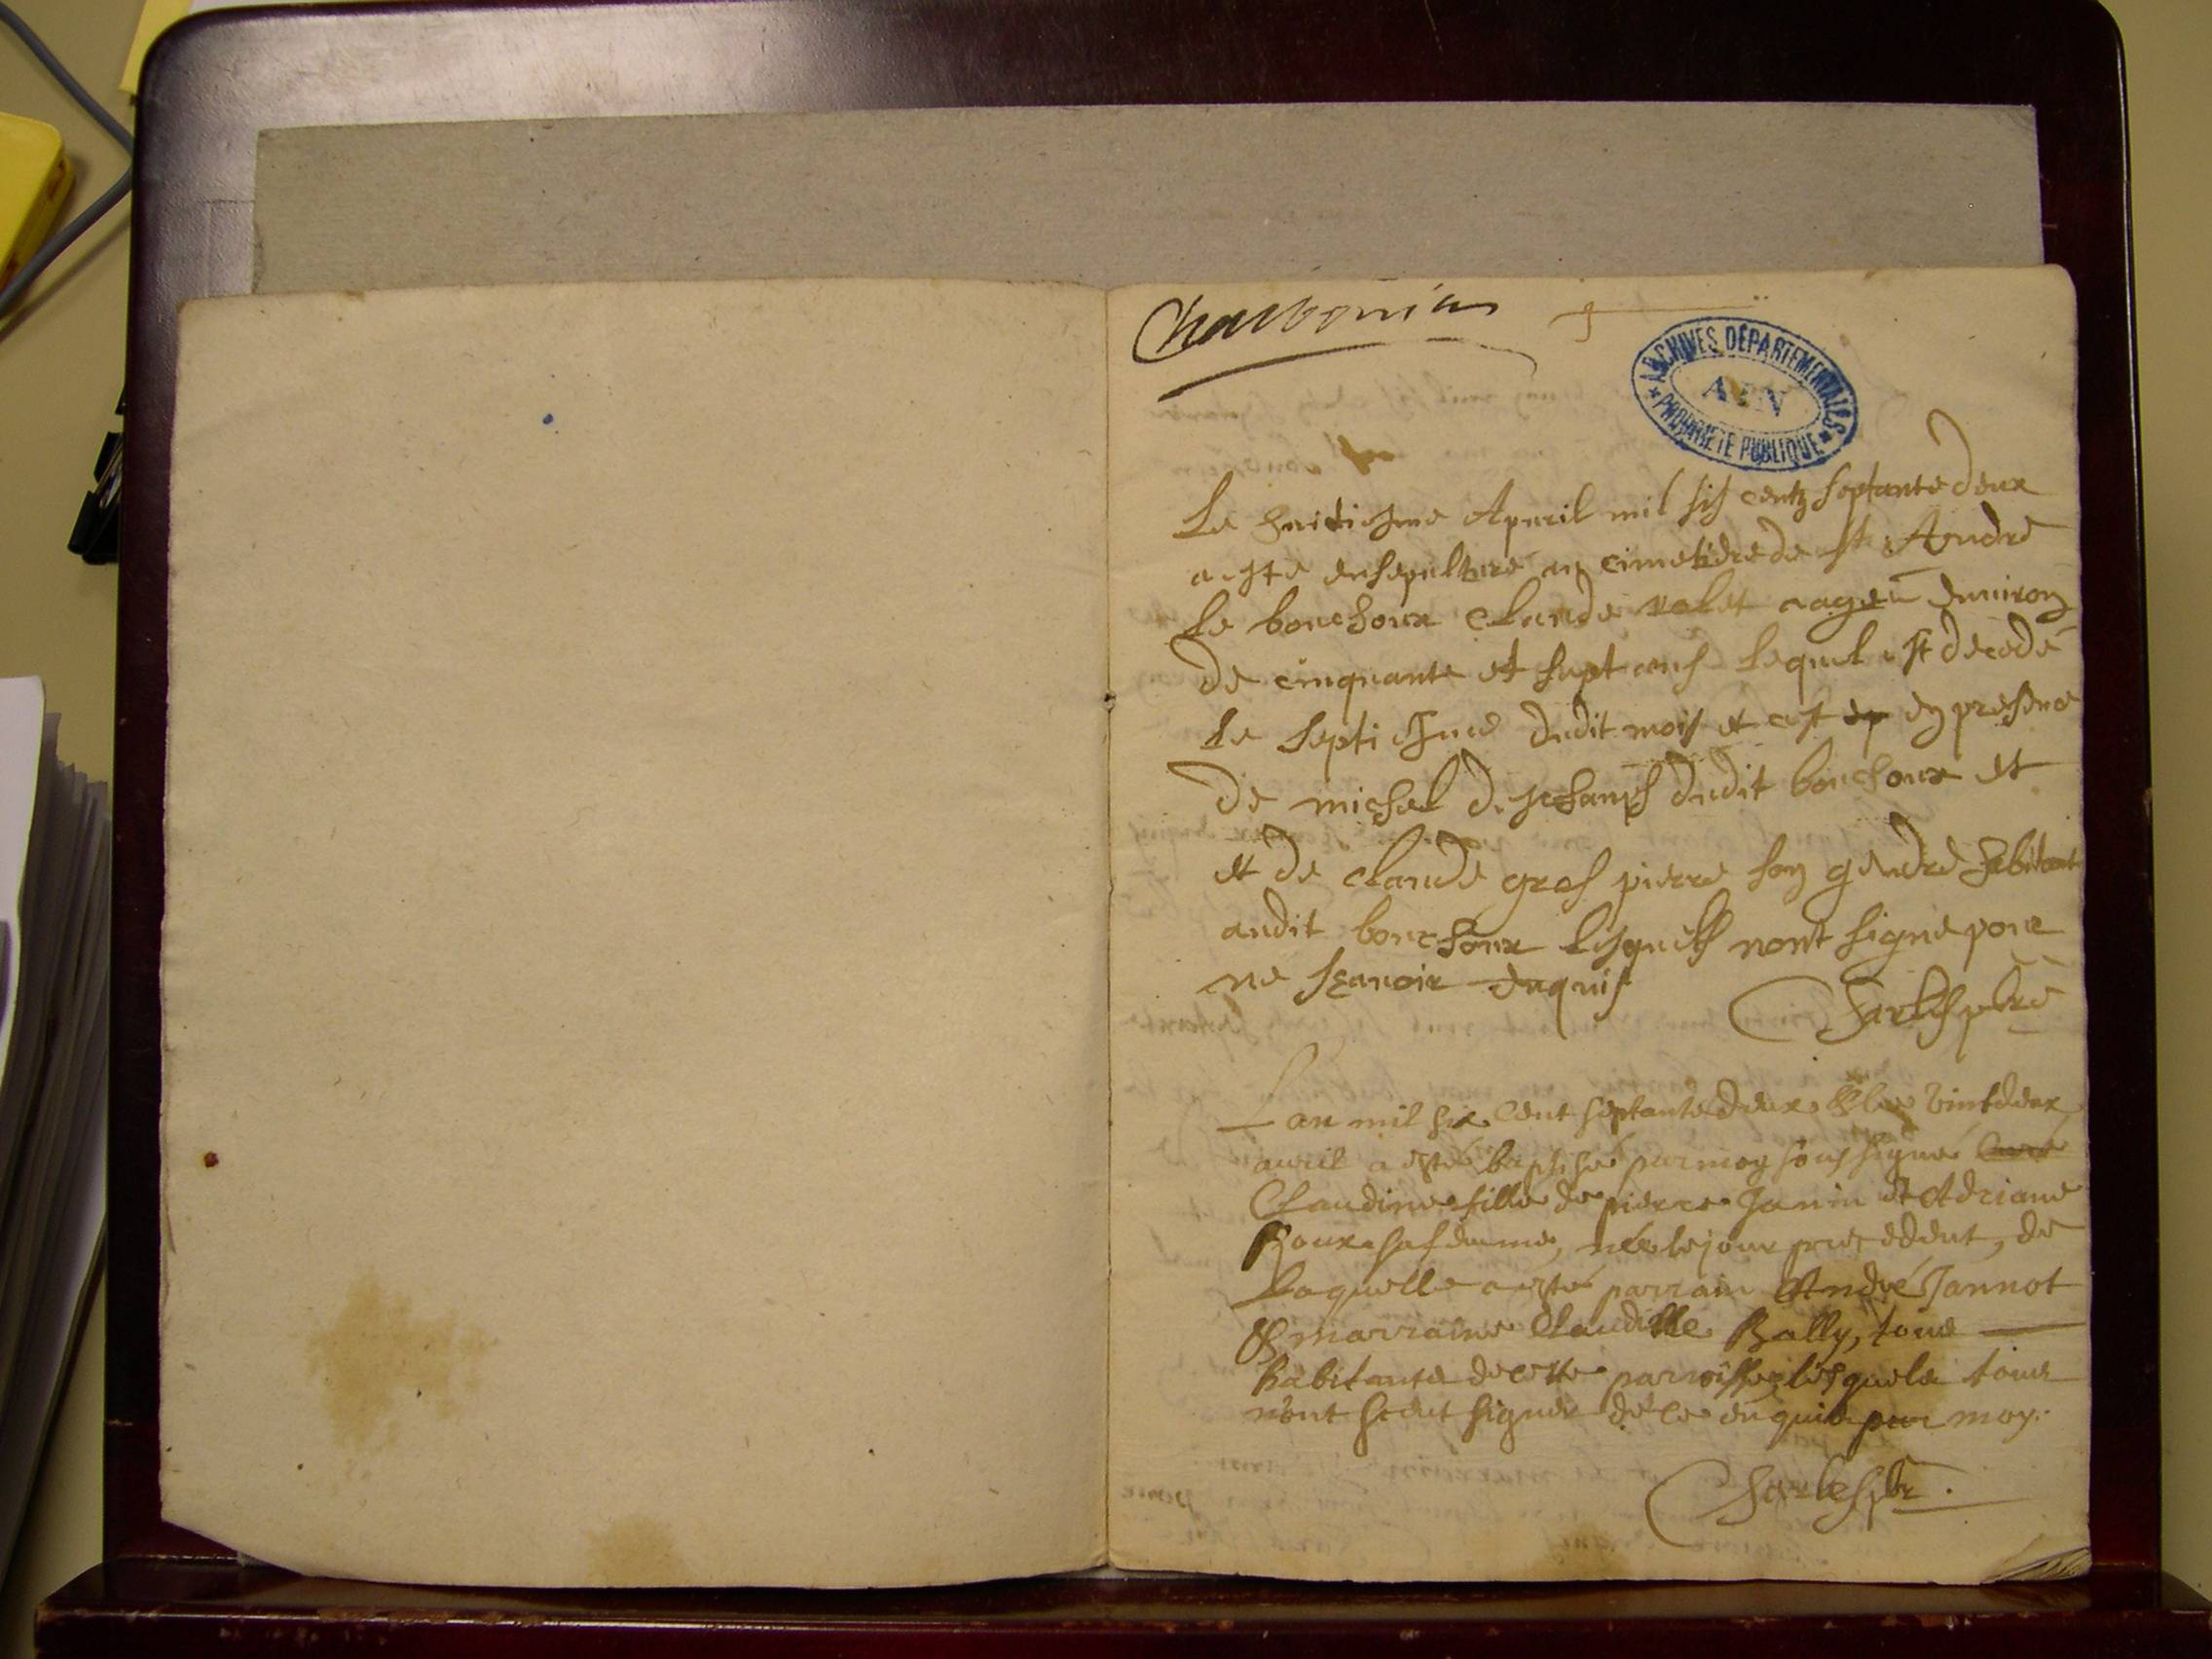 Charbonier
ARCHIVES DÉPARTEMENTALES
AIN
PROPRIÉTÉ PUBLIQUE
Le huictiesme Apuril mil six centz septante deux
a esté ensepulturé au cimetiere de st Andre
le bouchoux Claude valet aage enuiron
de cinquante et sept ans lequel est decedé
le septiesme dudit mois et en presence
de michel deschamps dudit bouchoux et
et de claude gros pierre son gendre habitant
audit bouchoux lesquels nont signe pour
ne scauoir enquis
Charles pbre
Lan mil six cent septante deux & le vint deux
auril a esté baptisée par moy soussigné curé
Claudine fille de pierre Janin et Adriane
Roux sa femme, née le jour precedent, de
laquelle a esté parrain André Jannot
& marraine Claudine Bally, tous
habitants de cette parroisse lesquels tous
n'ont sceut signer de ce enquis par moy.
Charles pbr.